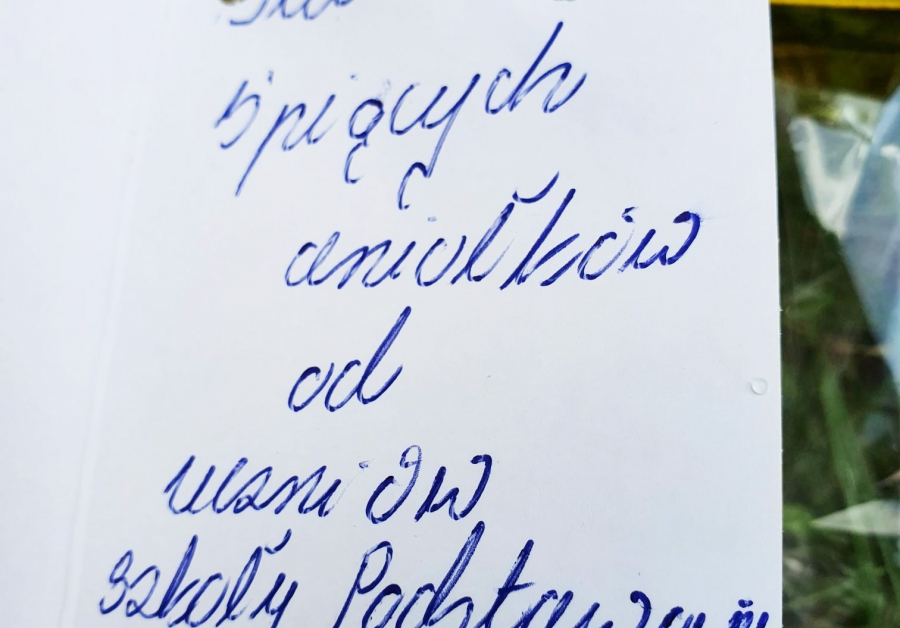 śpiących
aniołków
od
uczniów
szkoły Podstawowej